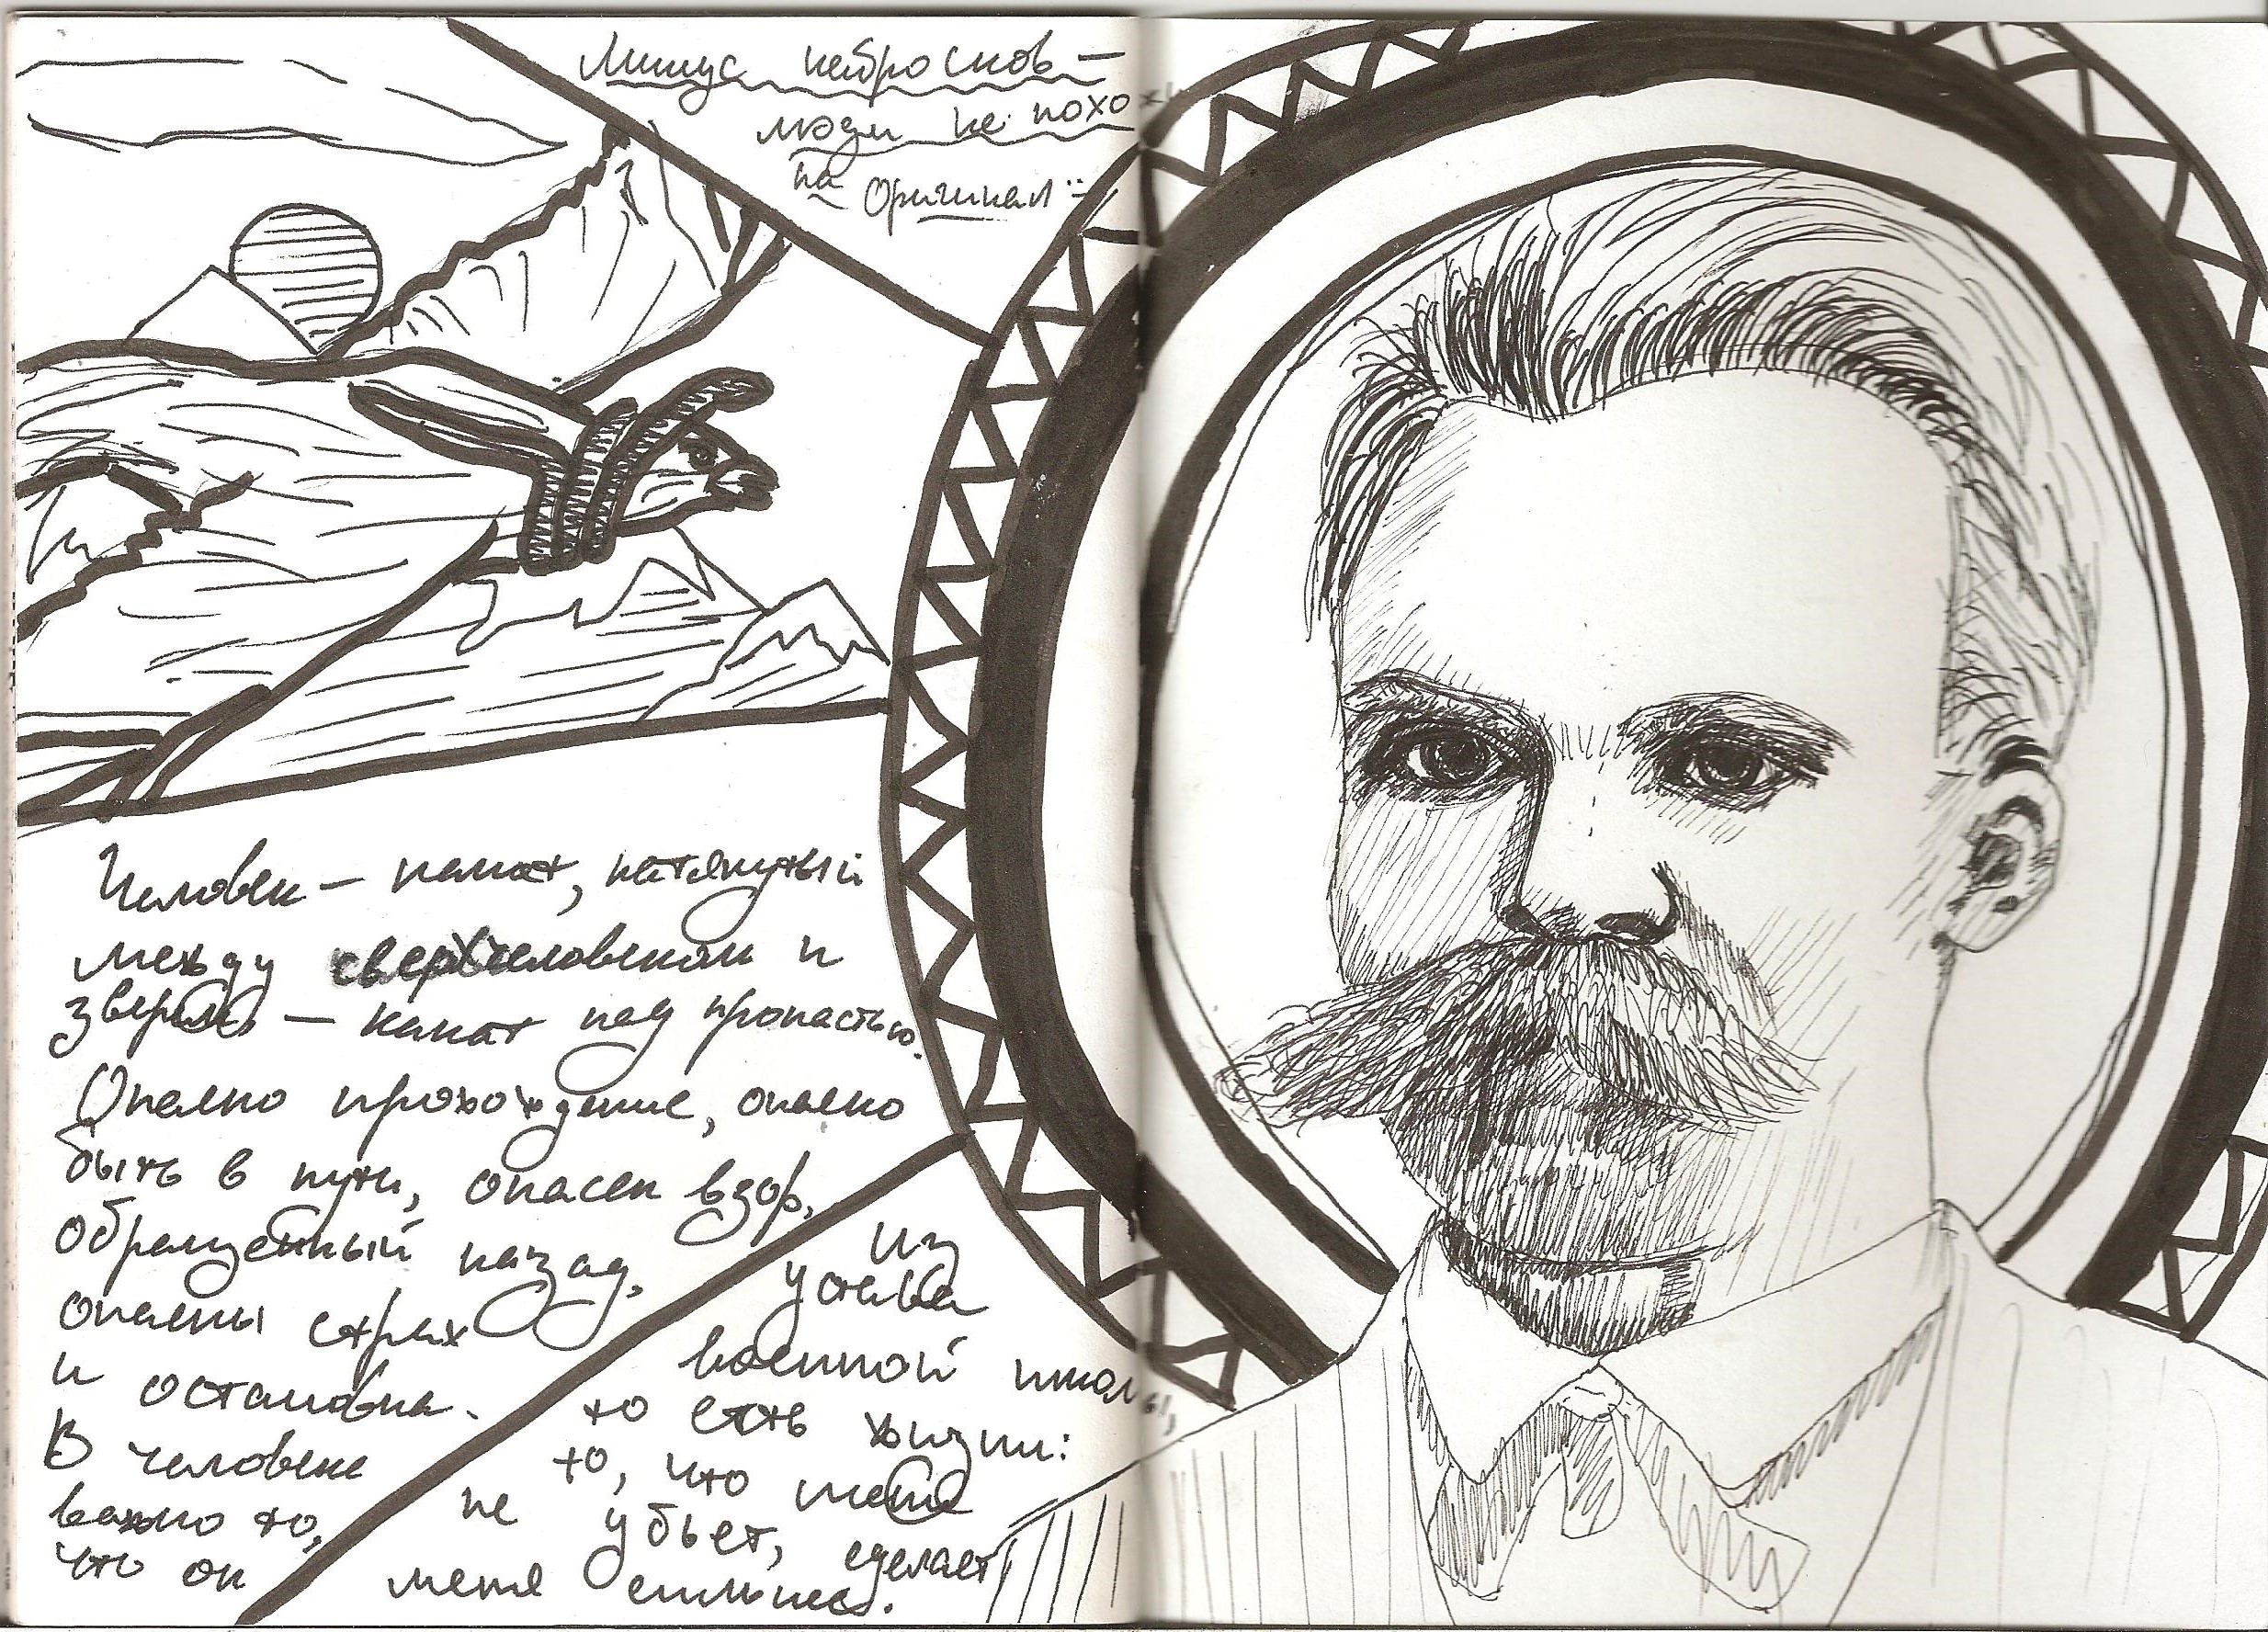 Минус набросков –
люди не похожи
на оригинал
Человек – канат, натянутый
между сверхчеловеком и
зверем – канат над пропастью.
Опасно прохождение, опасно
быть в пути, опасен взор,
обращенный назад,
опасны страх
и остановка.
В человеке
важно то,
что он
Из
устава
военной школы,
то есть жизни:
то, что меня
не убьет, сделает
меня сильнее.